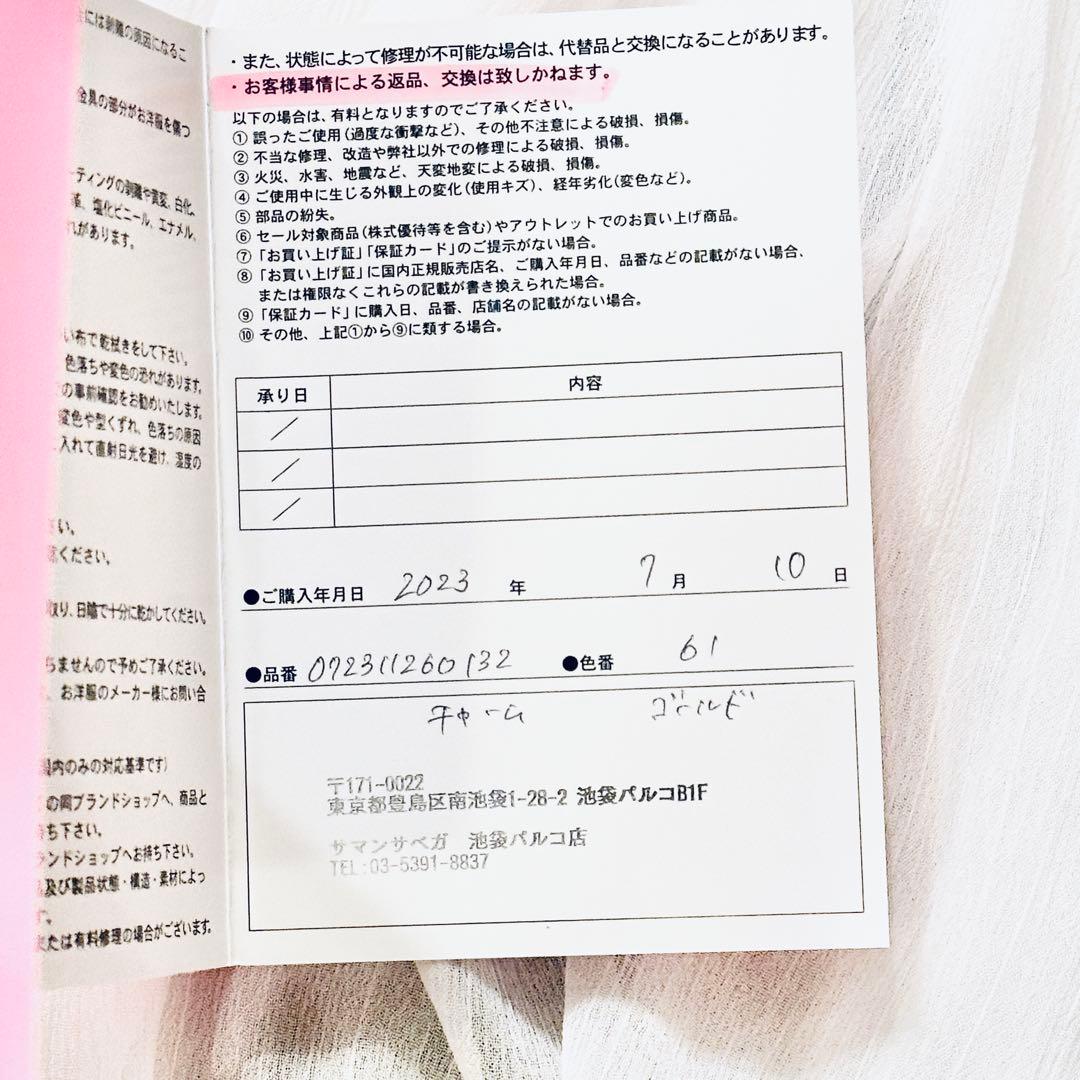 には剥離の原因になるこ
金具の部分がお洋服を傷つ
ーティングの剥離や黄変、白化、
革、塩化ビニール、エナメル、
れがあります。
い布で乾拭きをして下さい。
色落ちや変色の恐れがあります。
の事前確認をお勧めいたします。
変色や型くずれ、色落ちの原因
入れて直射日光を避け、湿度の
さい。
ください。
取り、日陰で十分に乾かしてください。
ちませんので予めご了承ください。
お洋服のメーカー様にお問い合
内のみの対応基準です)
の同ブランドショップへ、商品と
ち下さい。
ランドショップへお持ち下さい。
及び製品状態・構造・素材によっ
す。
または有料修理の場合がございます。
・また、状態によって修理が不可能な場合は、代替品と交換になることがあります。
・お客様事情による返品、交換は致しかねます。
以下の場合は、有料となりますのでご了承ください。
① 誤ったご使用(過度な衝撃など)、その他不注意による破損、損傷。
② 不当な修理、改造や弊社以外での修理による破損、損傷。
③ 火災、水害、地震など、天変地変による破損、損傷。
④ ご使用中に生じる外観上の変化(使用キズ)、経年劣化(変色など)。
⑤ 部品の紛失。
⑥ セール対象商品(株式優待等を含む)やアウトレットでのお買い上げ商品。
⑦ 「お買い上げ証」「保証カード」のご提示がない場合。
⑧ 「お買い上げ証」に国内正規販売店名、ご購入年月日、品番などの記載がない場合、
または権限なくこれらの記載が書き換えられた場合。
⑨ 「保証カード」に購入日、品番、店舗名の記載がない場合。
⑩ その他、上記①から⑨に類する場合。
承り日 内容
／
／
／
●ご購入年月日 2023 年 7 月 10 日
●品番 072311260132 ●色番 61
チャーム ゴールド
〒171-0022
東京都豊島区南池袋1-28-2 池袋パルコB1F
サマンサベガ 池袋パルコ店
TEL:03-5391-8837